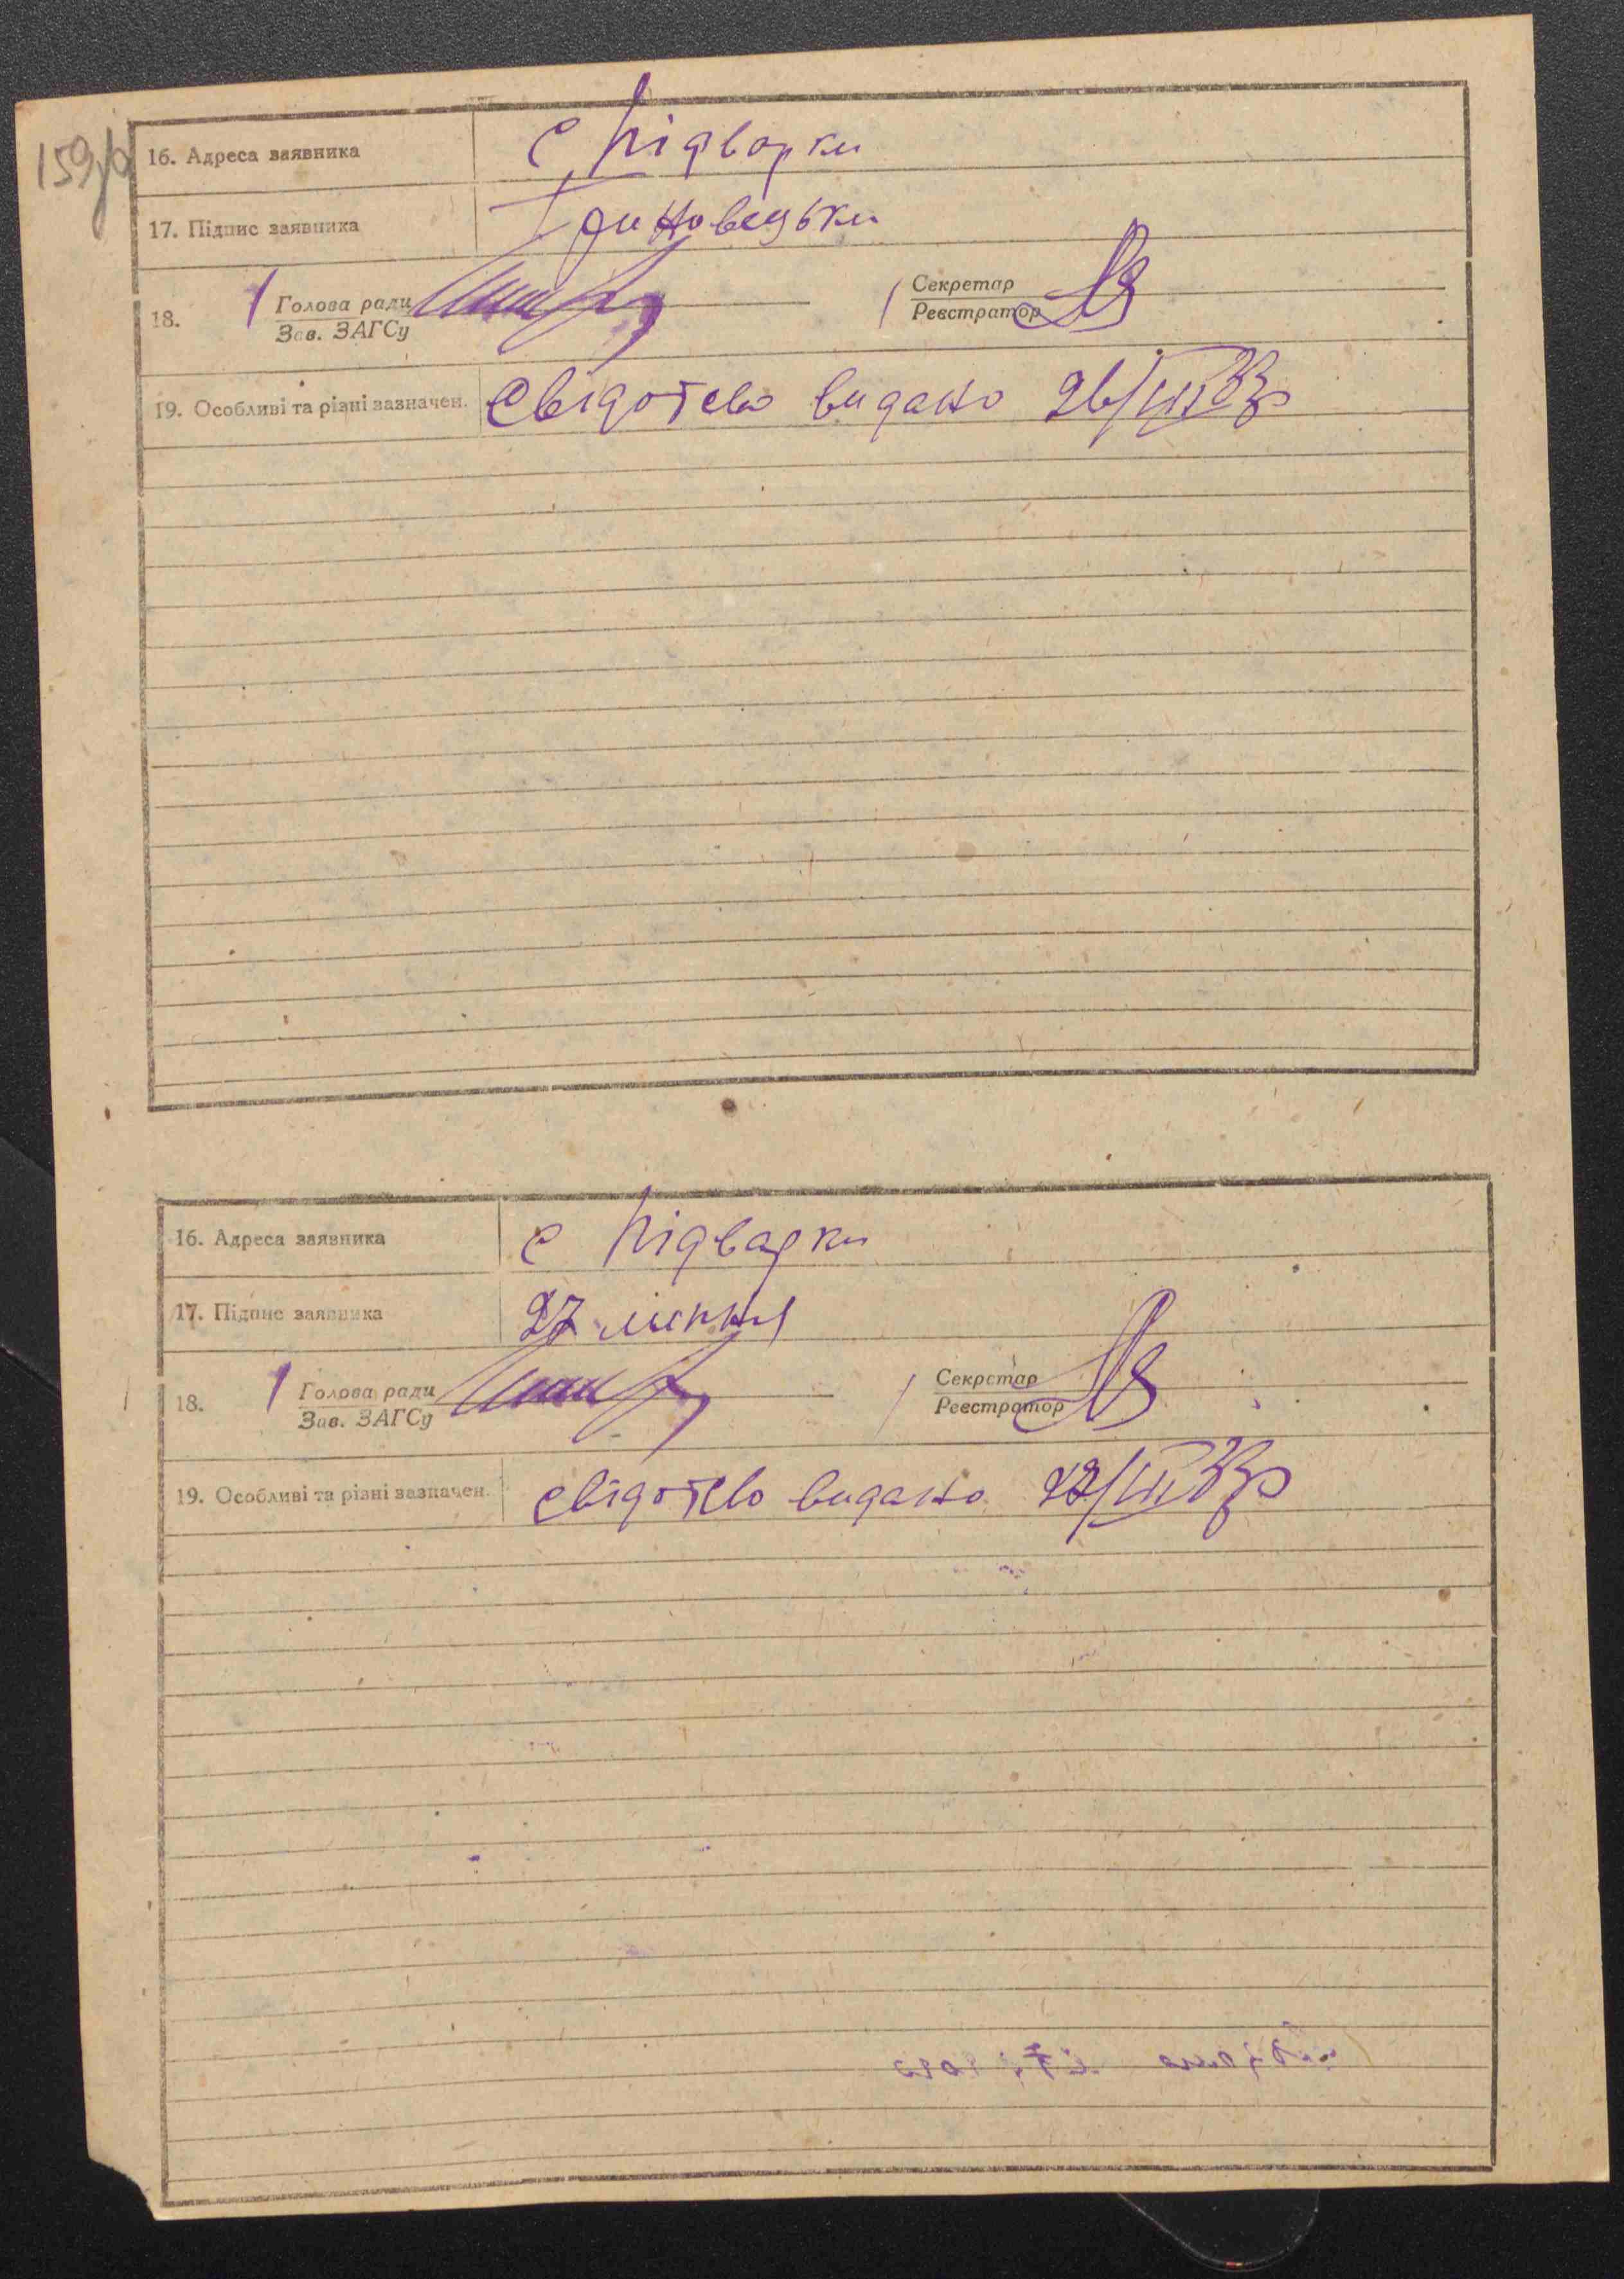 159зв
16. Адреса заявника с Підворки
17. Підпис заявника
18. Голова ради
Зав. ЗАГСу
Секретар
Реєстратор
19. Особливі та різні зазначен. Свідотсво видано 26/VII 33р
16. Адреса заявника с Підварки
17. Підпис заявника 27 липня
18. Голова ради
Зав. ЗАГСу
Секретар
Реєстратор
19. Особливі та різні зазначен. свідотсво видано